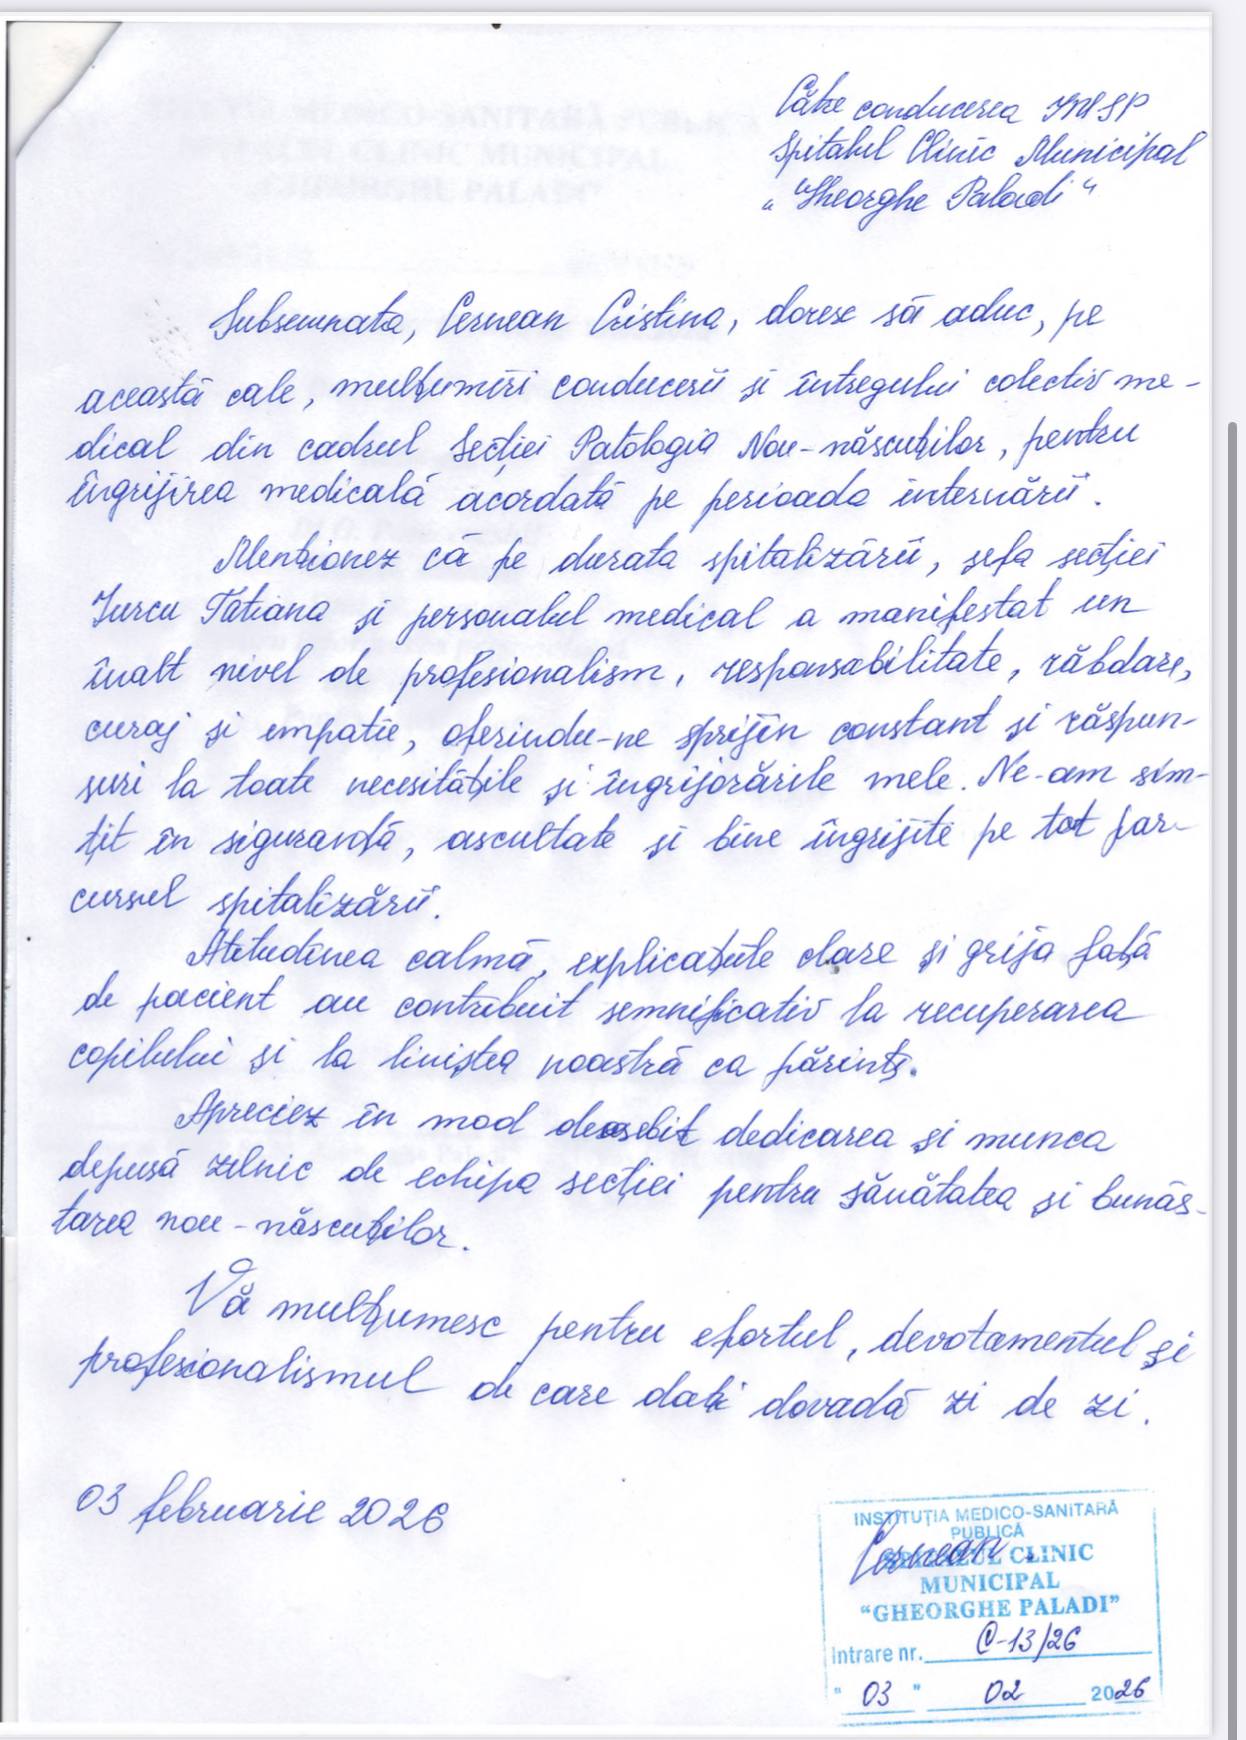 Către conducerea IMSP
Spitalul Clinic Municipal
„Gheorghe Paladi"
Subsemnata, Cernean Cristina, doresc să aduc, pe
această cale, mulțumiri conducerii și întregului colectiv me-
dical din cadrul Secției Patologia Nou-născuților, pentru
îngrijirea medicală acordată pe perioada internării.
Menționez că pe durata spitalizării, șefa secției
Țurcu Tatiana și personalul medical a manifestat un
înalt nivel de profesionalism, responsabilitate, răbdare,
curaj și empatie, oferindu-ne sprijin constant și răspun-
suri la toate necesitățile și îngrijorările mele. Ne-am sim-
țit în siguranță, ascultate și bine îngrijite pe tot par-
cursul spitalizării.
Atitudinea calmă, explicațiile clare și grija față
de pacient au contribuit semnificativ la recuperarea
copilului și la liniștea noastră ca părinți.
Apreciez în mod deosebit dedicarea și munca
depusă zilnic de echipa secției pentru sănătatea și bunăs-
tarea nou-născuților.
Vă mulțumesc pentru efortul, devotamentul și
profesionalismul de care dați dovadă zi de zi.
03 februarie 2026
INSTITUȚIA MEDICO-SANITARĂ
PUBLICĂ
Cernean
SPITALUL CLINIC
MUNICIPAL
"GHEORGHE PALADI"
Intrare nr. C-13/26
" 03 " 02 2026